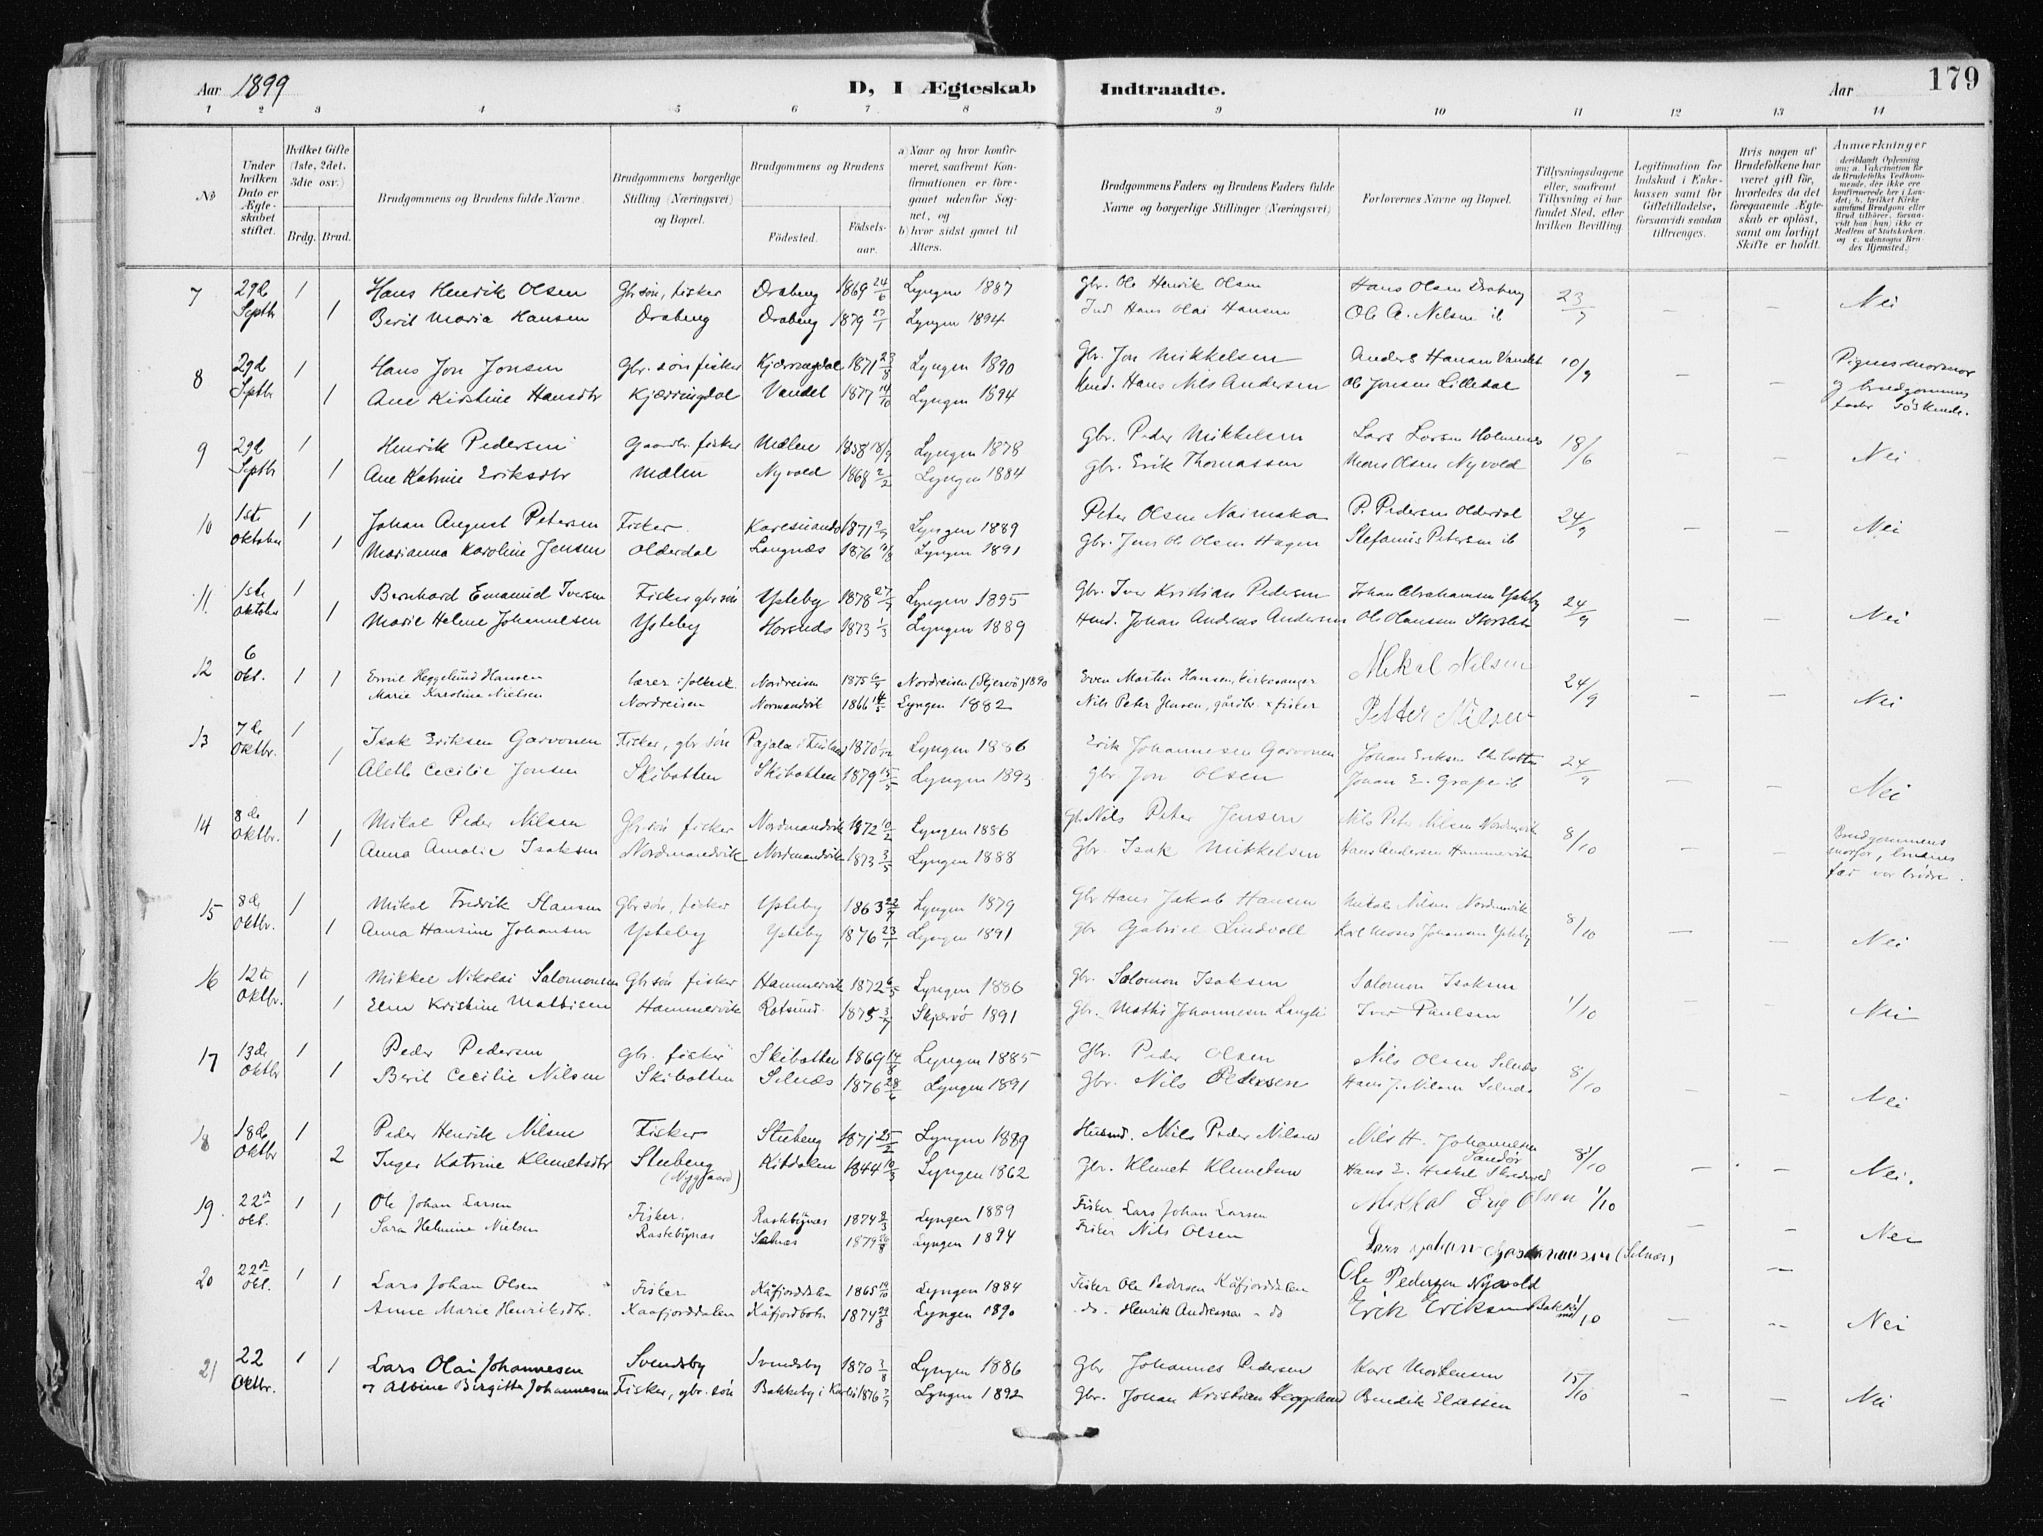 179
Aar 1899 D, I Ægteskab Indtraadte. Aar
1 2 3 4 5 6 7 8 9 10 11 12 13 14
No
Under hvilken Dato er Ægteskabet stiftet.
Hvilket Gifte (1ste, 2det, 3die osv.)
Brdg. Brud.
Brudgommens og Brudens fulde Navne.
Brudgommens borgerlige Stilling (Næringsvei) og Bopæl.
Brudgommens og Brudens
Födested. Födselsaar.
a) Naar og hvor konfirmeret, saafremt Konfirmationen er foregaaet udenfor Sognet, og
b) hvor sidst gaaet til Alters.
Brudgommens Faders og Brudens Faders fulde Navne og borgerlige Stillinger (Næringsvei)
Forlovernes Navne og Bopæl.
Tillysningsdagene eller, saafremt Tillysning ei har fundet Sted, efter hvilken Bevilling.
Legitimation for Indskud i Enkekassen samt for Giftetilladelse, forsaavidt saadan tiltrænges.
Hvis nogen af Brudefolkene har været gift før, hvorledes da det foregaaende Ægteskab er oplöst, samt om lovligt Skifte er holdt.
Anmærkninger
7 29d 1 Hans Henrik Olsen Gbr.søn, fisker Draabeng 1869 24/6 Lyngen 1887 Gbr. Ole Henrik Olsen Hans Olsen Drabeng 23/7 - - Nei
Septb 1 Berit Maria Hansen Drabeng Drabeng 1879 27/1 Lyngen 1894 Ind. Hans Olai Hansen Ole A. Nilsen ib
8 29d 1 Hans Jon Jonsen Gbr. søn fisker Kjærringdal 1871 23/3 Lyngen 1890 Gbr. Jon Mikkelsen Anders Hansen Vandet 10/9 - - Pigens mormor
Septbr 1 Ane Kirstine Hansdtr Kjærringdal Vandet 1877 14/10 Lyngen 1894 Hans Nils Andersen Ole Jonsen Lilledal og brudgommens
fader söskende.
9 29d 1 Henrik Pedersen Gaardbr. fisker Mælen 1858 18/9 Lyngen 1878 Gbr. Peder Mikkelsen Lars Larsen Holmenes 18/6 - - Nei
Septbr 1 Ane Katrine Eriksdtr Mælen Nyvold 1868 2/2 Lyngen 1884 Gbr. Erik Thomassen Hans Olsen Nyvold
10 1ste 1 Johan August Petersen Fisker Karesuando 1871 Lyngen 1889 Peter Olsen Naimaka P. Pedersen Olderdal 24/9 - - Nei
Oktober 1 Marianna Karoline Jensen Olderdal Langnæs 1876 Lyngen 1891 Gbr. Jens Ole Olsen Hagen Stefanus Petersen ib
11 1ste 1 Bernhard Emanuel Iversen Fisker gbr søn Ysteby 1878 27/7 Lyngen 1895 Gbr. Iver Kristian Pedersen Johan Abrahamsen Ysteby 24/9 - - Nei
Oktober 1 Marie Helene Johannesen Ysteby Horsnæs 1873 1/3 Lyngen 1889 Johan Andreas Andersen Ole Hansen Storslet
12 6 Okt. 1 1 Emil Heggelund Hansen Lærer i folkesk. Nordreisen 1875 6/9 Nordreisen (Skjervö) 1890 Even Martin Hansen, kirkesanger Mikal Nilsen 24/9 - - Nei
Marie Karoline Nielsen Nordreisen Normandvik 1866 14/5 Lyngen 1882 Nils Peter Jensen, gårdbr. x fisker Petter Nilsen
13 7de 1 Isak Eriksen Garvonen Fisker, gbr søn Pajala i Finland 1870 Lyngen 1886 Erik Johannesen Garvonen Johan Eriksen Skibotten 24/9 - - Nei
Oktbr. 1 Aleth Cecilie Jonsen Skibotten Skibotten 1879 15/5 Lyngen 1893 Gbr Jon Olsen Johan E. Grape ib
14 8de 1 Mikal Peder Nilsen Gbr søn fisker Nordmandvik 1872 10/2 Lyngen 1886 Gbr. Nils Peter Jensen Nils Peter Nilsen Nordmvik 8/10 - - Brudgommens
Oktbr. 1 Anna Amalie Isaksen Nordmandvik Nordmandvik 1873 3/5 Lyngen 1888 Gbr. Isak Mikkelsen Hans Andersen Hammervik morfar, brudens
far var brödre.
15 8de 1 Mikal Fredrik Hansen Gbr søn, fisker Ysteby 1863 22/7 Lyngen 1879 Gbr Hans Jakob Hansen Mikal Nilsen Nordmvik 8/10 - - Nei
Oktbr. 1 Anna Hansine Johansen Ysteby Ysteby 1876 23/1 Lyngen 1891 gbr Gabriel Lindvall Karl Moses Johansen Ysteby
16 12te 1 Mikkel Nikolai Salomonsen Gbr søn fisker Hammervik 1872 6/5 Lyngen 1886 gbr. Salomon Isaksen Salomon Isaksen 1/10 - - Nei
Oktbr. 1 Elen Kristine Mathisen Hammervik Rotsund 1875 3/7 Skjervö 1891 Gbr. Mathis Johannesen Langli Iver Paulsen
17 13de 1 Peder Pedersen gbr. fisker Skibotten 1869 14/8 Lyngen 1885 Gbr. Peder Olsen Nils Olsen Selnæs 8/10 Nei
Oktbr 1 Berit Cecilie Nilsen Skibotten Selnæs 1876 28/6 Lyngen 1891 Gbr. Nils Pedersen Hans J. Nilsen Selnæs
18 18de 1 Peder Henrik Nilsen Fisker Stubeng 1871 25/2 Lyngen 1889 Husmd. Nils Peder Nilsen Nils H. Johannesen Sandør 8/10 - - Nei.
Oktbr 2 Inger Katrine Klemetsdtr Stubeng (Nygaard) Kitdalen 1844 10/3 Lyngen 1862 Gbr. Klemet Klemetsen Hans E. Heiskel Skredvold
19. 22er 1 1 Ole Johan Larsen Fisker. Rastebynæs 1874 8/3 Lyngen 1889 Fisker Lars Johan Larsen Mikkal Erig Olsen 1/10 - - Nei
Okt. Sara Helmine Nielsen Rastebynæs Selnæs 1879 Lyngen 1894 Fisker Nils Olsen Lars Johan (Selnæs)
20 22er 1 1 Lars Johan Olsen Fisker Kåfjorddalen 1865 19/10 Lyngen 1884 Fisker Ole Pedersen Kåfjorddalen Ole Pedersen Nyvold 1/10 - - Nei
Okt. Anne Marie Henriksdtr. Kaafjorddalen Kåfjordbotn 1874 29/8 Lyngen 1890 do. Henrik Andreassen do Erik Eriksen
21 22 1 1 Lars Olai Johannesen Svendsby Svendsby 1870 3/8 Lyngen 1886 Gbr Johannes Pedersen Karl Mortensen 15/10 - - Nei
Oktbr. og Albine Birgitte Johannesen Fisker, gbr. søn Bakkeby i Karlsö 1876 7/7 Lyngen 1892 Gbr. Johan Kristian Heggelund Benedik Eliassen